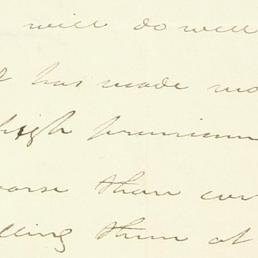 will do well
has made mo
high premium
worse than ev
lling them at